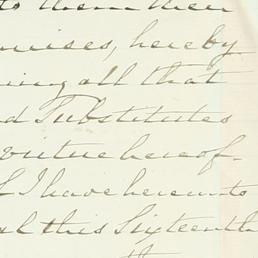 to them then
mises, hereby
ing all that
d Substitutes
virtue hereof
I have hereunto
al this Sixteenth